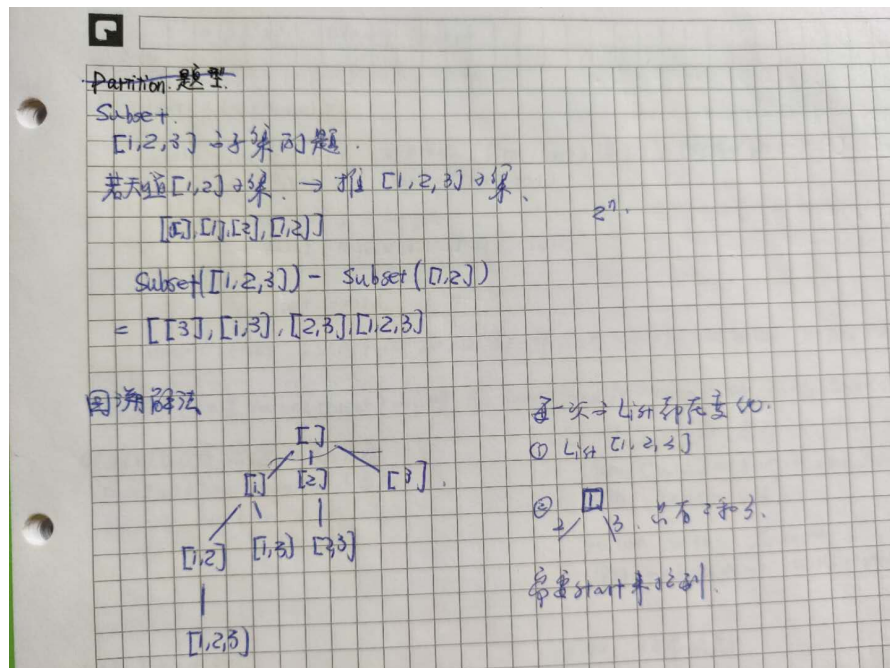 Partition 题型.
Subset.
[1,2,3] 的子集问题.
若知道[1,2]子集. → 推 [1,2,3] 子集.
2ⁿ.
[[],[1],[2],[1,2]]
Subset([1,2,3]) - Subset([1,2])
= [[3],[1,3],[2,3],[1,2,3]
回溯解法
[]
[1] [2] [3].
[1,2] [1,3] [2,3]
[1,2,3]
每一次的List都在变化.
① List [1,2,3]
② [1]
2 3. 只有2和3.
需要start来控制.